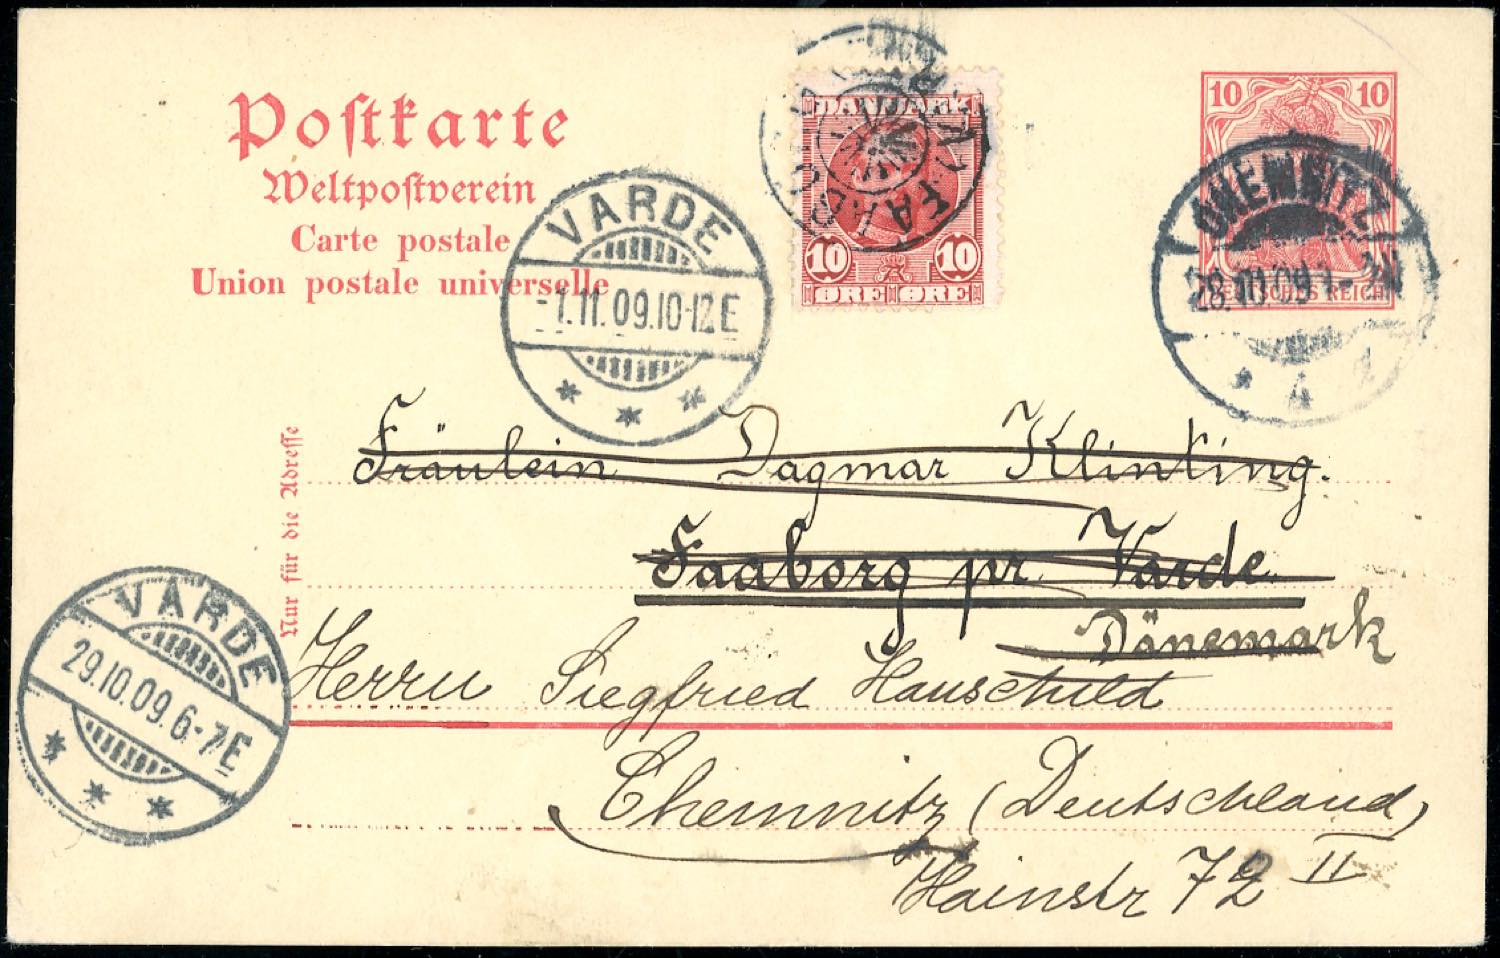 Postkarte
Weltpostverein
Carte postale
Union postale universelle
DANMARK
10 10
ØRE ØRE
FAABORG
10 10
DEUTSCHES REICH
CHEMNITZ
28.10.09
* 4
VARDE
-1.11.09.10-12E
* * *
Nur für die Adresse
Fräulein Dagmar Klinting.
Faaborg pr. Varde
Dänemark
VARDE
29.10.09.6-7E
* * * *
Herrn Siegfried Hauschild
Chemnitz (Deutschland)
Hainstr 72 II